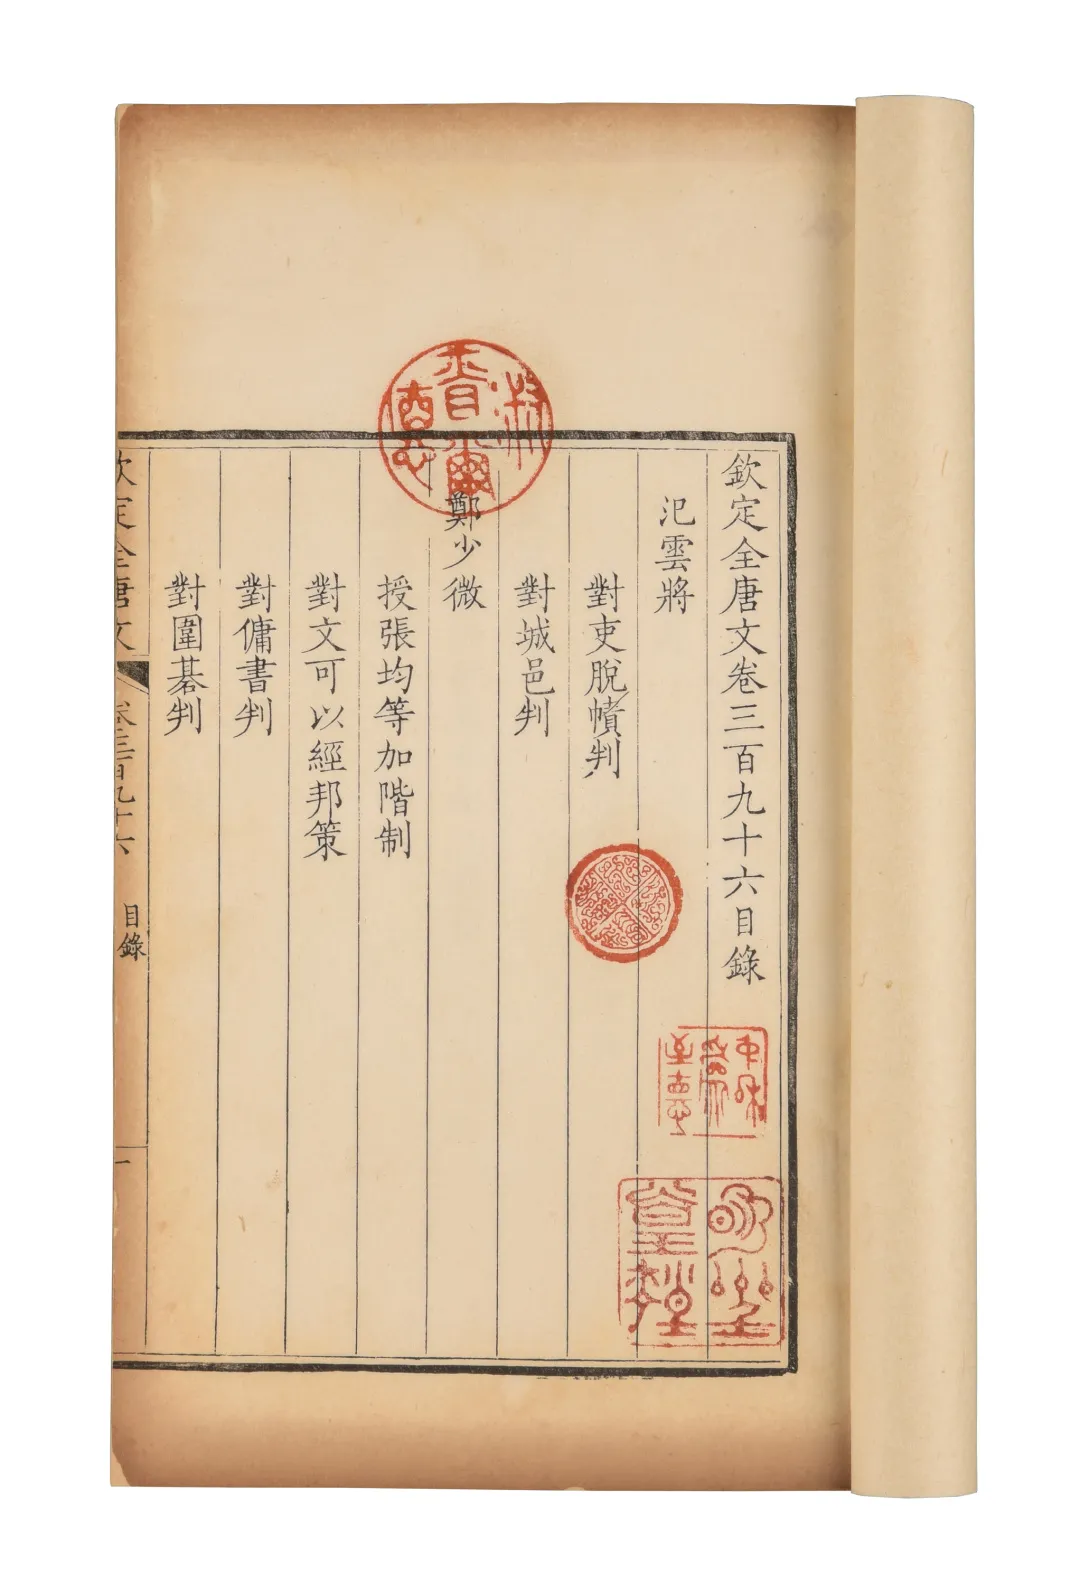 欽定全唐文卷三百九十六目錄
氾雲將
對吏脫幘判
對城邑判
鄭少微
授張均等加階制
對文可以經邦策
對傭書判
對圍棊判
欽定全唐文
卷三百九十六
目錄
一